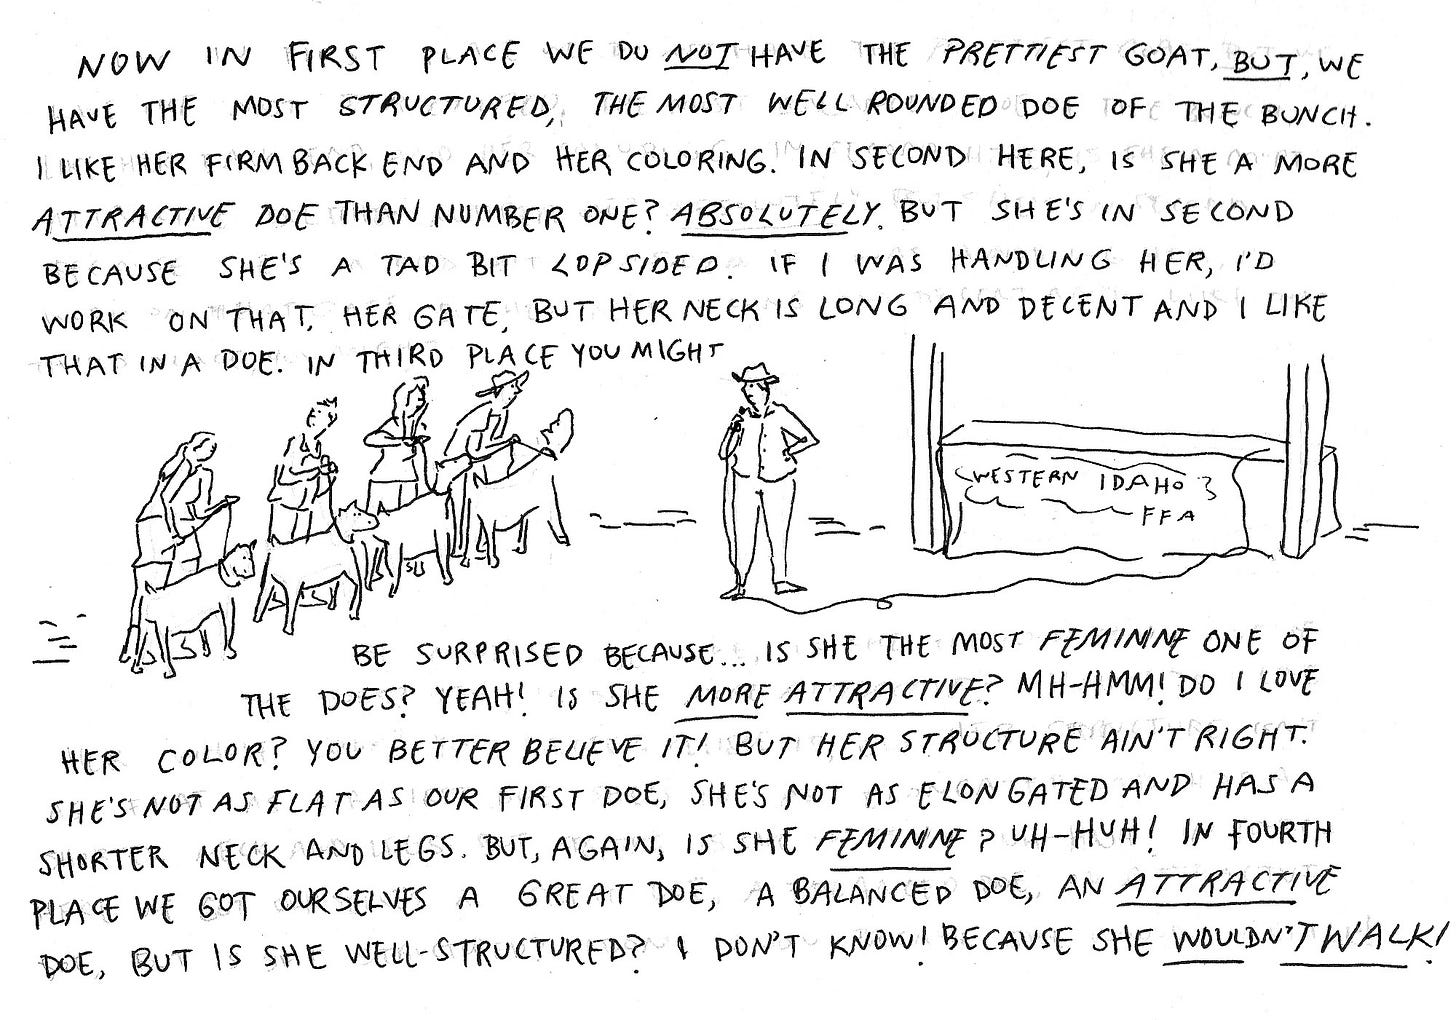 NOW IN FIRST PLACE WE DO NOT HAVE THE PRETTIEST GOAT, BUT, WE
HAVE THE MOST STRUCTURED, THE MOST WELL ROUNDED DOE OF THE BUNCH.
I LIKE HER FIRM BACK END AND HER COLORING. IN SECOND HERE, IS SHE A MORE
ATTRACTIVE DOE THAN NUMBER ONE? ABSOLUTELY. BUT SHE'S IN SECOND
BECAUSE SHE'S A TAD BIT LOPSIDED. IF I WAS HANDLING HER, I'D
WORK ON THAT, HER GATE, BUT HER NECK IS LONG AND DECENT AND I LIKE
THAT IN A DOE. IN THIRD PLACE YOU MIGHT
WESTERN IDAHO
FFA
BE SURPRISED BECAUSE... IS SHE THE MOST FEMININE ONE OF
THE DOES? YEAH! IS SHE MORE ATTRACTIVE? MH-HMM! DO I LOVE
HER COLOR? YOU BETTER BELIEVE IT! BUT HER STRUCTURE AIN'T RIGHT.
SHE'S NOT AS FLAT AS OUR FIRST DOE, SHE'S NOT AS ELONGATED AND HAS A
SHORTER NECK AND LEGS. BUT, AGAIN, IS SHE FEMININE? UH-HUH! IN FOURTH
PLACE WE GOT OURSELVES A GREAT DOE, A BALANCED DOE, AN ATTRACTIVE
DOE, BUT IS SHE WELL-STRUCTURED? I DON'T KNOW! BECAUSE SHE WOULDN'T WALK!